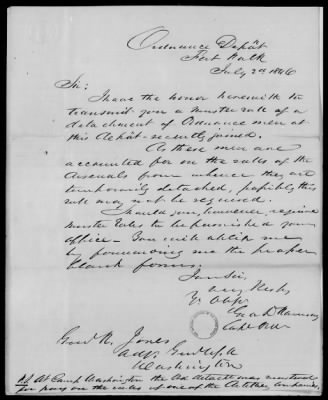 Ordnance Depôt
Fort Polk
July 2d 1846
Sir:
I have the honor herewith to
transmit you a muster role of a
detachment of Ordnance men at
this Depôt - recently joined.
As these men are
accounted for on the roles of the
Arsenals from whence they are
temporarily detached, possibly this
role may not be required.
Should you, however, require
muster roles to be furnished your
office - You will oblige me
by forwarding me the proper
blank forms.
I am Sir,
Very Resby
Yr. Obt.
Geo D Ramsay
Capt. Ord.
Genl R. Jones
Adjt. Genl U.S.A
Washington
P.S. At Camp Washington the Ord detacht was mustered
for pay on the roles of one of the Artillery Companies